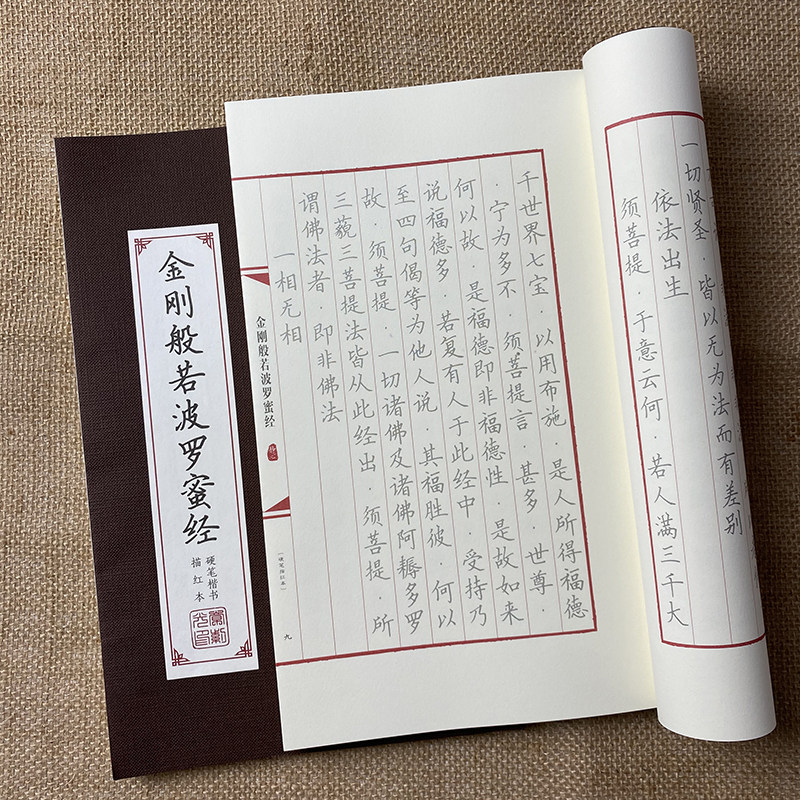 金刚般若波罗蜜经
硬笔楷书
描红本
一切贤圣·皆以无为法而有差别
依法出生
须菩提·于意云何·若人满三千大
千世界七宝·以用布施·是人所得福德
·宁为多不·须菩提言·甚多·世尊·
何以故·是福德即非福德性·是故如来
说福德多·若复有人于此经中·受持乃
至四句偈等为他人说·其福胜彼·何以
故·须菩提·一切诸佛及诸佛阿耨多罗
三藐三菩提法皆从此经出·须菩提·所
谓佛法者·即非佛法
一相无相
金刚般若波罗蜜经
(硬笔描红本)
九